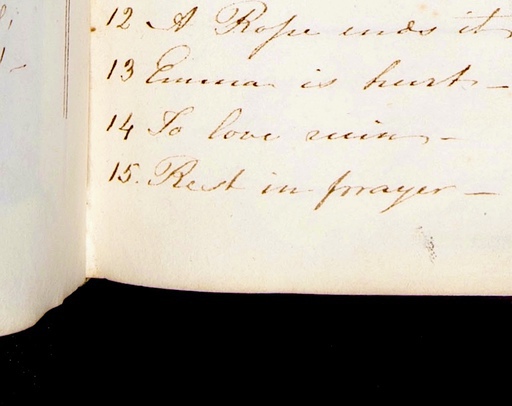 12 A Rope ends it
13 Emma is hurt -
14 To love ruin -
15. Rest in prayer -